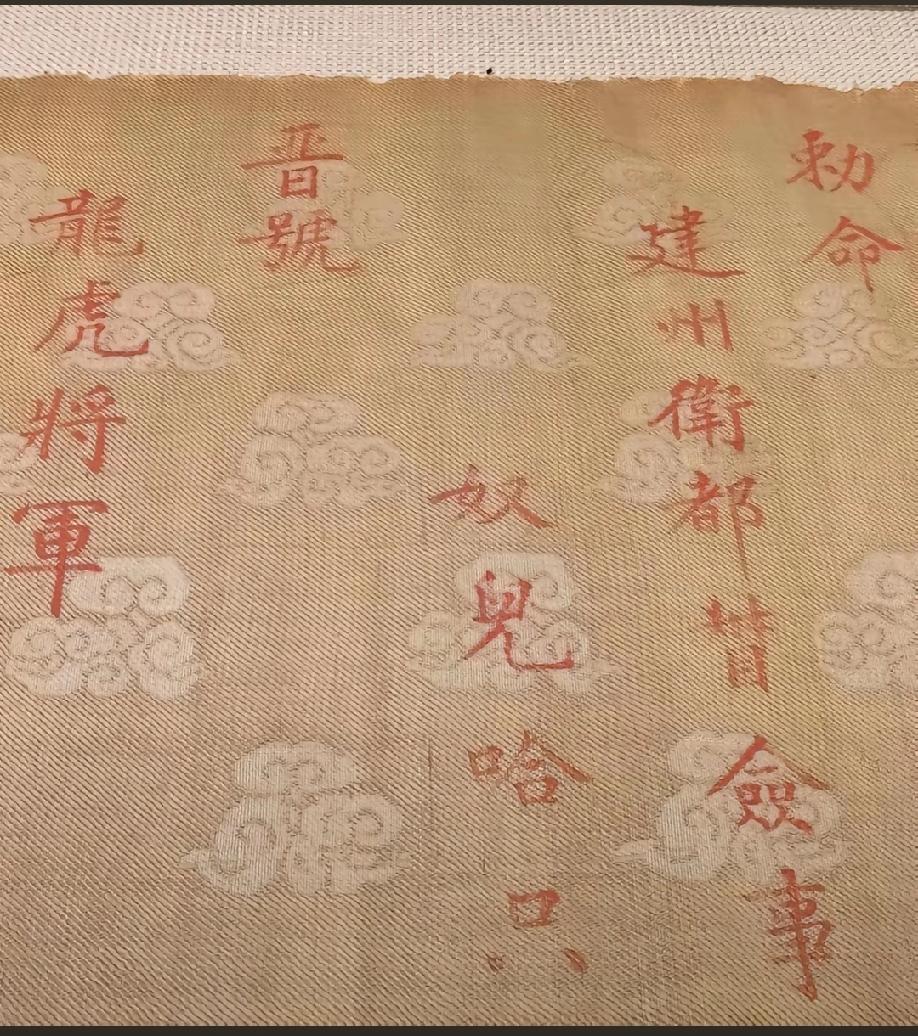 勅命
建州衛都督僉事
奴兒哈只
晋號
龍虎將軍